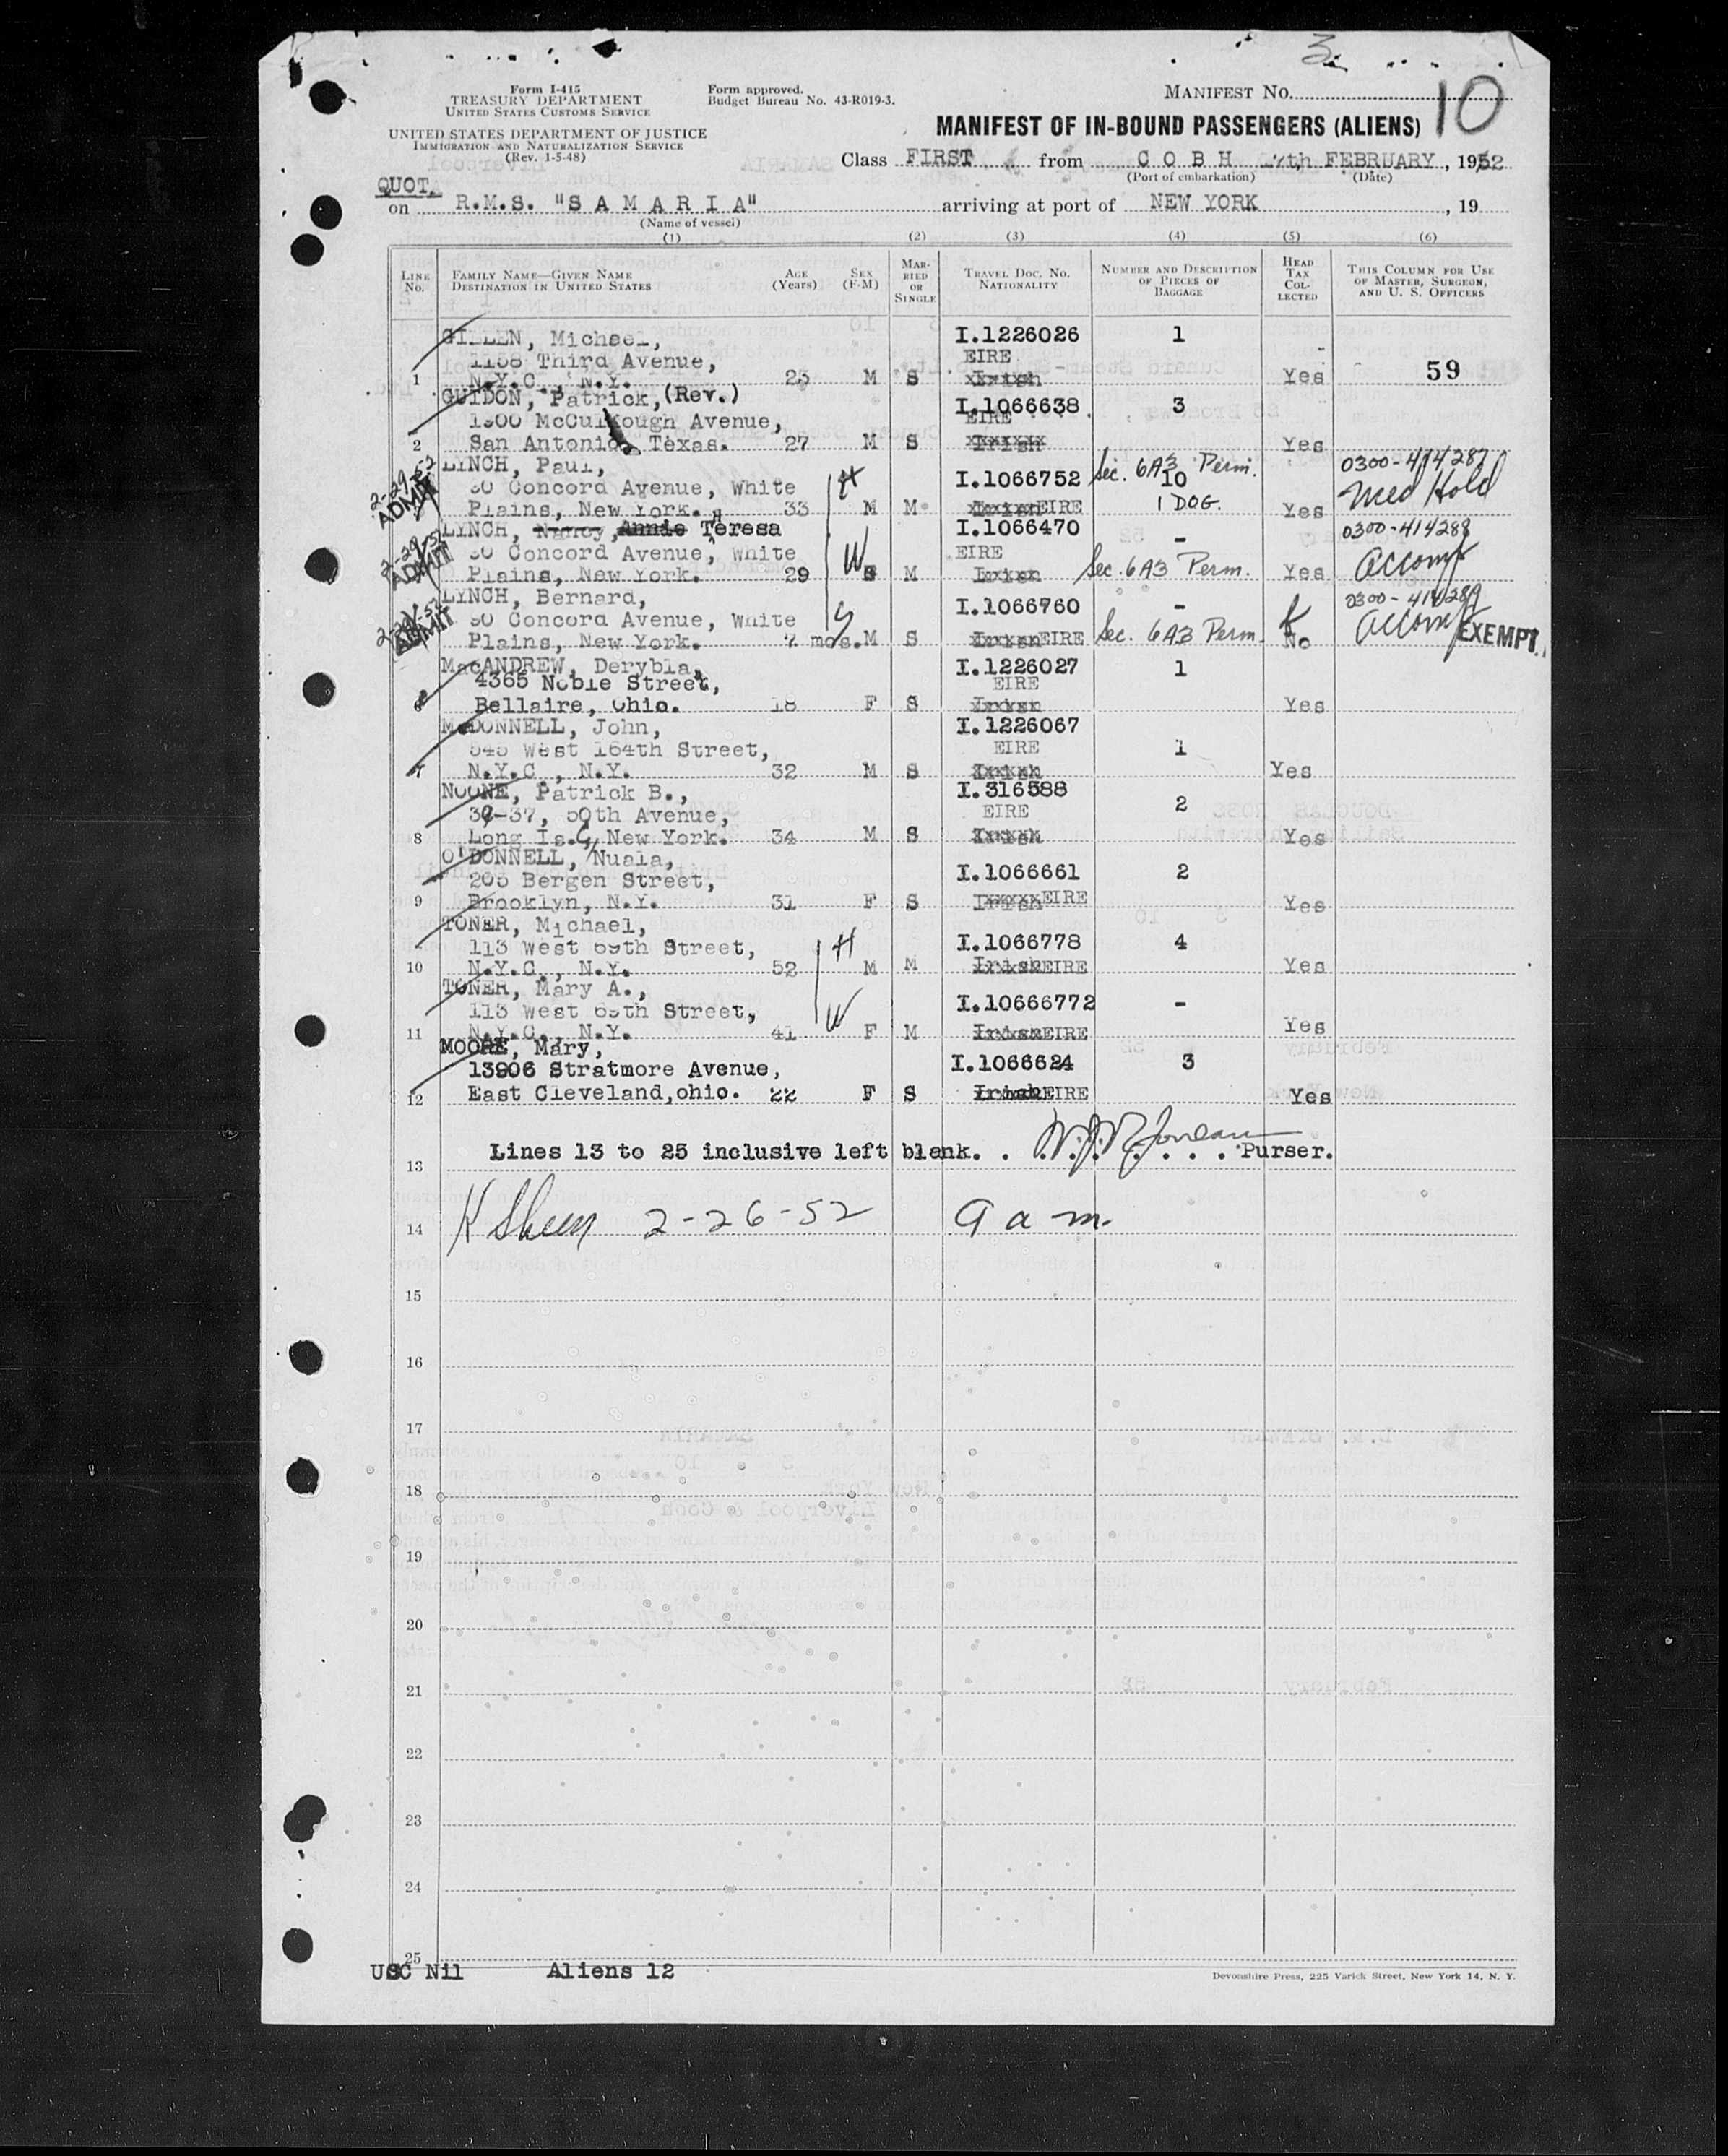 3
Form I-415
TREASURY DEPARTMENT
UNITED STATES CUSTOMS SERVICE
UNITED STATES DEPARTMENT OF JUSTICE
IMMIGRATION AND NATURALIZATION SERVICE
(Rev. 1-5-48)
Form approved.
Budget Bureau No. 43-R019-3.
MANIFEST NO. 10
MANIFEST OF IN-BOUND PASSENGERS (ALIENS)
Class FIRST from C O B H FEBRUARY, 1952
(Port of embarkation) (Date)
QUOT.
on R.M.S. "S A M A R I A" arriving at port of NEW YORK, 19
(Name of vessel)
(1) (2) (3) (4) (5) (6)
LINE NO. FAMILY NAME—GIVEN NAME DESTINATION IN UNITED STATES AGE (Years) SEX (F-M) MARRIED OR SINGLE TRAVEL DOC. NO. NATIONALITY NUMBER AND DESCRIPTION OF PIECES OF BAGGAGE HEAD TAX COLLECTED THIS COLUMN FOR USE OF MASTER, SURGEON, AND U. S. OFFICERS
GILLEN, Michael, I.1226026 1
1158 Third Avenue, EIRE
1 N.Y.C., N.Y. 23 M S Irish Yes 59
GUIDON, Patrick, (Rev.) I.1066638 3
1900 McCullough Avenue, EIRE
2 San Antonio, Texas. 27 M S Irish Yes
LYNCH, Paul, Sec. 6A3 Perm. 0300-414287
30 Concord Avenue, White H I.1066752 10 Med Hold
2-29-52 ADMIT Plains, New York. 33 M M Irish EIRE 1 DOG. Yes
LYNCH, Nancy, Annie Teresa I.1066470 - 0300-414288
30 Concord Avenue, White W EIRE Accomp
2-29-52 ADMIT Plains, New York. 29 M Irish Sec. 6A3 Perm. Yes
LYNCH, Bernard, I.1066760 - 0300-414289
30 Concord Avenue, White S Accomp
2-29-52 ADMIT Plains, New York. 7 mos. M S Irish EIRE Sec. 6A3 Perm. No EXEMPT
MacANDREW, Derybla, I.1226027 1
4365 Noble Street, EIRE
6 Bellaire, Ohio. 18 F S Irish Yes
McDONNELL, John, I.1226067
545 West 164th Street, EIRE 1
7 N.Y.C., N.Y. 32 M S Irish Yes
NOONE, Patrick B., I.316588
39-37, 50th Avenue, EIRE 2
8 Long Is.C, New York. 34 M S Irish Yes
O'DONNELL, Nuala,
205 Bergen Street, I.1066661 2
9 Brooklyn, N.Y. 31 F S Irish EIRE Yes
TONER, Michael,
113 West 69th Street, H I.1066778 4
10 N.Y.C., N.Y. 52 M M Irish EIRE Yes
TONER, Mary A.,
113 West 69th Street, W I.10666772 -
11 N.Y.C., N.Y. 41 F M Irish EIRE Yes
MOORE, Mary,
13906 Stratmore Avenue, I.1066624 3
12 East Cleveland,ohio. 22 F S Irish EIRE Yes
13 Lines 13 to 25 inclusive left blank. . . . . . . . Purser.
14 2-26-52 9 a m.
15
16
17
18
19
20
21
22
23
24
25
USC Nil Aliens 12
Devonshire Press, 225 Varick Street, New York 14, N. Y.